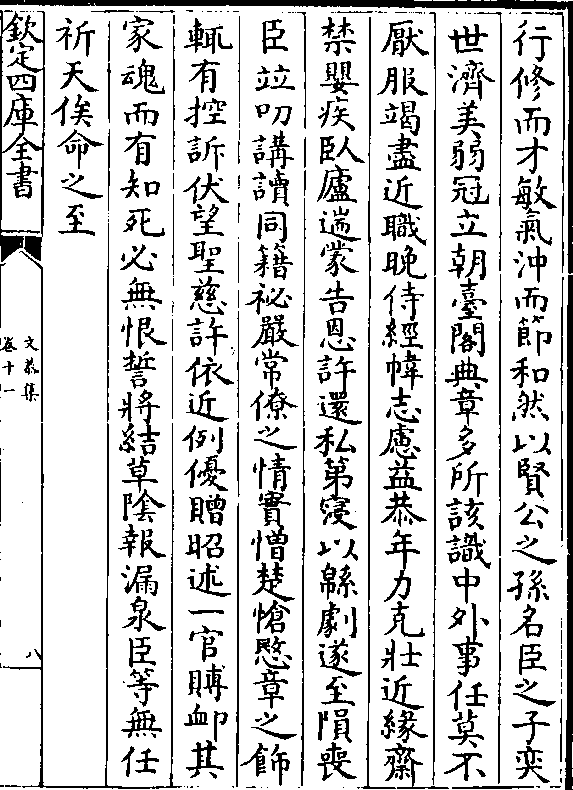 行修而才敏氣沖而節和然以賢公之孫名臣之子奕
世濟美弱冠立朝臺閣典章多所該識中外事任莫不
厭服竭盡近職晚侍經幃志慮益恭年力克壯近緣齋
禁嬰疾臥廬遄蒙告恩許還私第寖以緜劇遂至隕喪
臣竝叨講讀同籍祕嚴常僚之情實憯楚愴愍章之飾
輒有控訴伏望聖慈許依近例優贈昭述一官賻卹其
家魂而有知死必無恨誓將結草陰報漏泉臣等無任
祈天俟命之至
欽定四庫全書
文恭集
卷十一
八